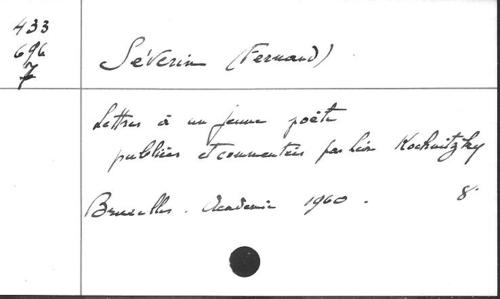 433
696
7
Séverin (Fernand)
Lettres à un jeune poète
publiées et commentées par Léon Kochnitzky
Bruxelles. Académie 1960. 8°